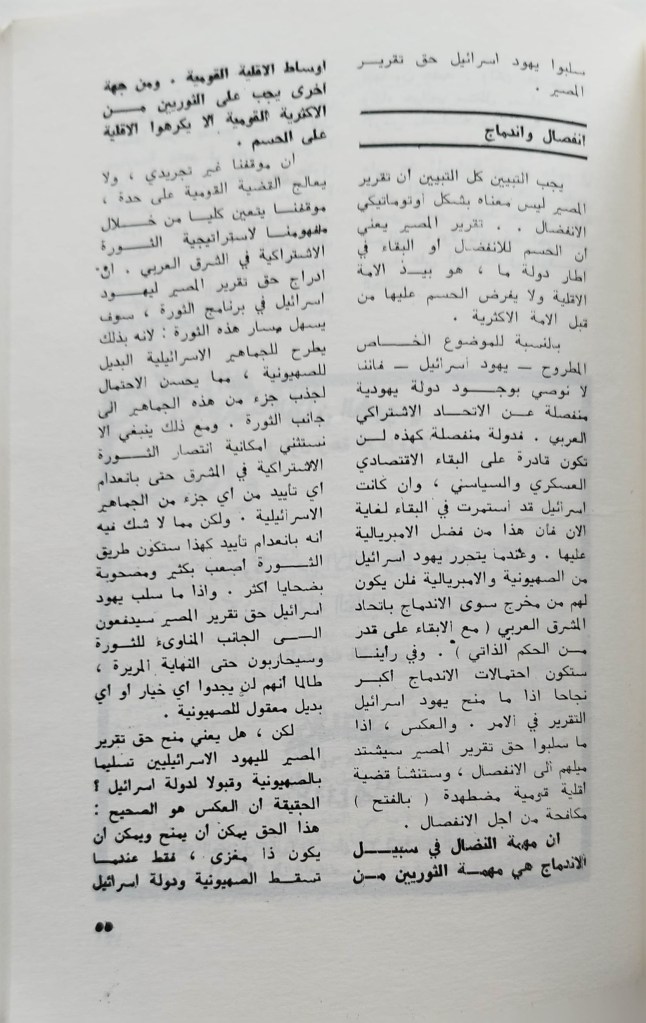 سلبوا يهود اسرائيل حق تقرير
المصير .
انفصال واندماج
يجب التبيين كل التبيين أن تقرير
المصير ليس معناه بشكل أوتوماتيكي
الانفصال . . تقرير المصير يعني
ان الحسم للانفصال او البقاء في
اطار دولة ما ، هو بيد الامة
الاقلية ولا يفرض الحسم عليها من
قبل الامة الاكثرية .
بالنسبة للموضوع الخاص
المطروح – يهود أسرائيل – فاننا
لا نوصي بوجود دولة يهودية
منفصلة عن الاتحاد الاشتراكي
العربي . فدولة منفصلة كهذه لن
تكون قادرة على البقاء الاقتصادي
العسكري والسياسي ، وان كانت
اسرائيل قد أستمرت في البقاء لغاية
الان فأن هذا من فضل الامبريالية
عليها . وعندما يتحرر يهود اسرائيل
من الصهيونية والامبريالية فلن يكون
لهم من مخرج سوى الاندماج باتحاد
المشرق العربي ( مع الابقاء على قدر
من الحكم الذاتي ) . وفي رأينا
ستكون احتمالات الاندماج أكبر
نجاحا اذا ما منح يهود اسرائيل
التقرير في الامر . والعكس ، اذا
ما سلبوا حق تقرير المصير سيشتد
ميلهم الى الانفصال ، وستنشأ قضية
أقلية قومية مضطهدة ( بالفتح )
مكافحة من اجل الانفصال .
ان مهمة النضال في سبيل
الاندماج هي مهمة الثوريين من
اوساط الاقلية القومية . ومن جهة
اخرى يجب على الثوريين من
الاكثرية القومية الا يكرهوا الاقلية
على الحسم .
ان موقفنا غير تجريدي ، ولا
يعالج القضية القومية على حدة ،
موقفنا يتعين كليا من خلال
مفهومنا لاستراتيجية الثورة
الاشتراكية في الشرق العربي . ان
ادراج حق تقرير المصير ليهود
اسرائيل في برنامج الثورة ، سوف
يسهل مسار هذه الثورة : لانه بذلك
يطرح للجماهير الاسرائيلية البديل
للصهيونية ، مما يحسن الاحتمال
لجذب جزء من هذه الجماهير الى
جانب الثورة . ومع ذلك ينبغي الا
نستثني امكانية انتصار الثورة
الاشتراكية في المشرق حتى بانعدام
اي تأييد من أي جزء من الجماهير
الاسرائيلية . ولكن مما لا شك فيه
انه بانعدام تأييد كهذا ستكون طريق
الثورة اصعب بكثير ومصحوبة
بضحايا أكثر . واذا ما سلب يهود
اسرائيل حق تقرير المصير سيدفعون
الى الجانب المناوىء للثورة
وسيحاربون حتى النهاية المريرة ،
طالما أنهم لن يجدوا اي خيار او أي
بديل معقول للصهيونية .
لكن ، هل يعني منح حق تقرير
المصير لليهود الاسرائيليين تسليما
بالصهيونية وقبولا لدولة اسرائيل ؟
الحقيقة أن العكس هو الصحيح :
هذا الحق يمكن أن يمنح ويمكن أن
يكون ذا مغزى ، فقط عندما
تسقط الصهيونية ودولة اسرائيل
٥٥